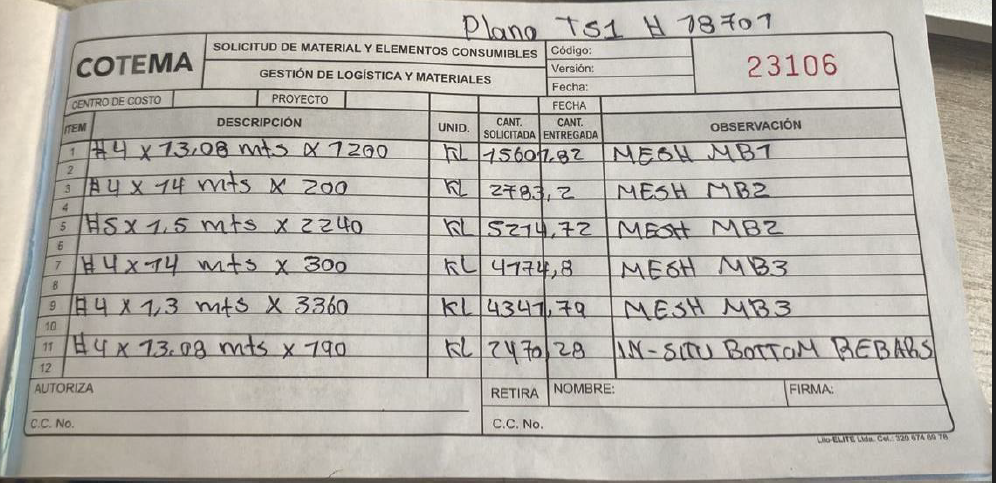 Plano TS1 H 18701
COTEMA
SOLICITUD DE MATERIAL Y ELEMENTOS CONSUMIBLES
GESTIÓN DE LOGÍSTICA Y MATERIALES
Código:
Versión:
Fecha:
23106
CENTRO DE COSTO PROYECTO FECHA
ITEM DESCRIPCIÓN UNID. CANT. SOLICITADA CANT. ENTREGADA OBSERVACIÓN
1 #4 x 13,08 mts x 1200 KL 15601,82 MESH MB1
2
3 #4 x 14 mts x 200 KL 2783,2 MESH MB2
4
5 #5 x 1,5 mts x 2240 KL 5214,72 MESH MB2
6
7 #4 x 14 mts x 300 KL 4174,8 MESH MB3
8
9 #4 x 1,3 mts x 3360 KL 4341,79 MESH MB3
10
11 #4 x 13.08 mts x 190 KL 2470,28 IN-SITU BOTTOM REBARS
12
AUTORIZA RETIRA NOMBRE: FIRMA:
C.C. No. C.C. No.
Lito-ELITE Ltda. Cel.: 320 674 60 76